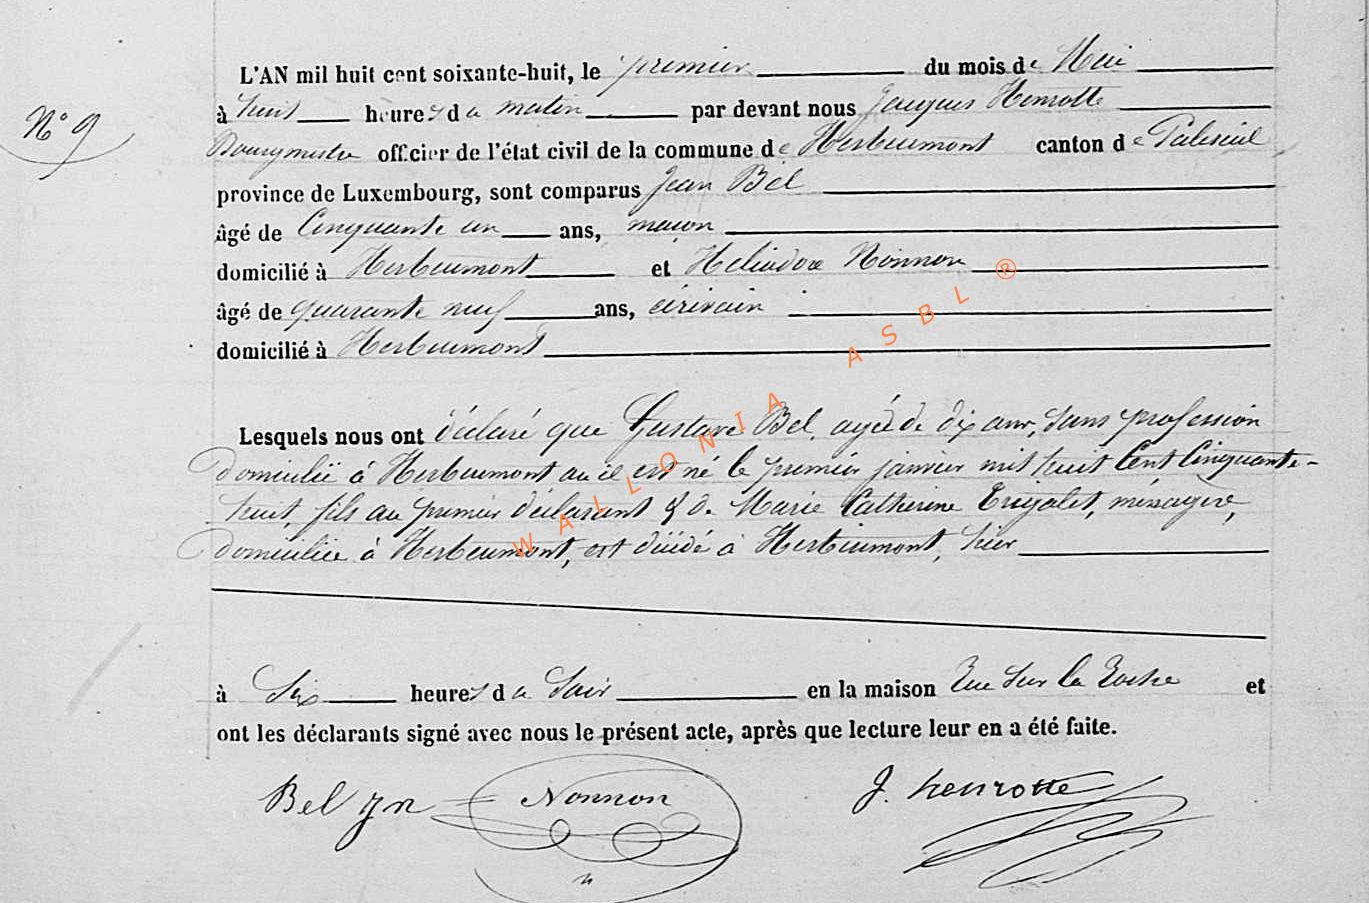 L'AN mil huit cent soixante-huit, le premier du mois de Mai
N° 9
à huit heures du matin par devant nous Jacques Henrotte
Bourgmestre officier de l'état civil de la commune de Herbeumont canton de Paliseul
province de Luxembourg, sont comparus Jean Bel
âgé de Cinquante un ans, maçon
domicilié à Herbeumont et Héliodore Nonnon
âgé de quarante neuf ans, écrivain
domicilié à Herbeumont
Lesquels nous ont déclaré que Gustave Bel, agé de dix ans, sans profession
domicilié à Herbeumont où il est né le premier janvier mil huit Cent Cinquante-
huit, fils du premier déclarant & de Marie Catherine Trigalet, ménagère,
domiciliée à Herbeumont, est décédé à Herbeumont, hier
à Six heures du Soir en la maison Rue Sur la Roche et
ont les déclarants signé avec nous le présent acte, après que lecture leur en a été faite.
Bel Jn Nonnon J. henrotte
WALLONIA ASBL ®